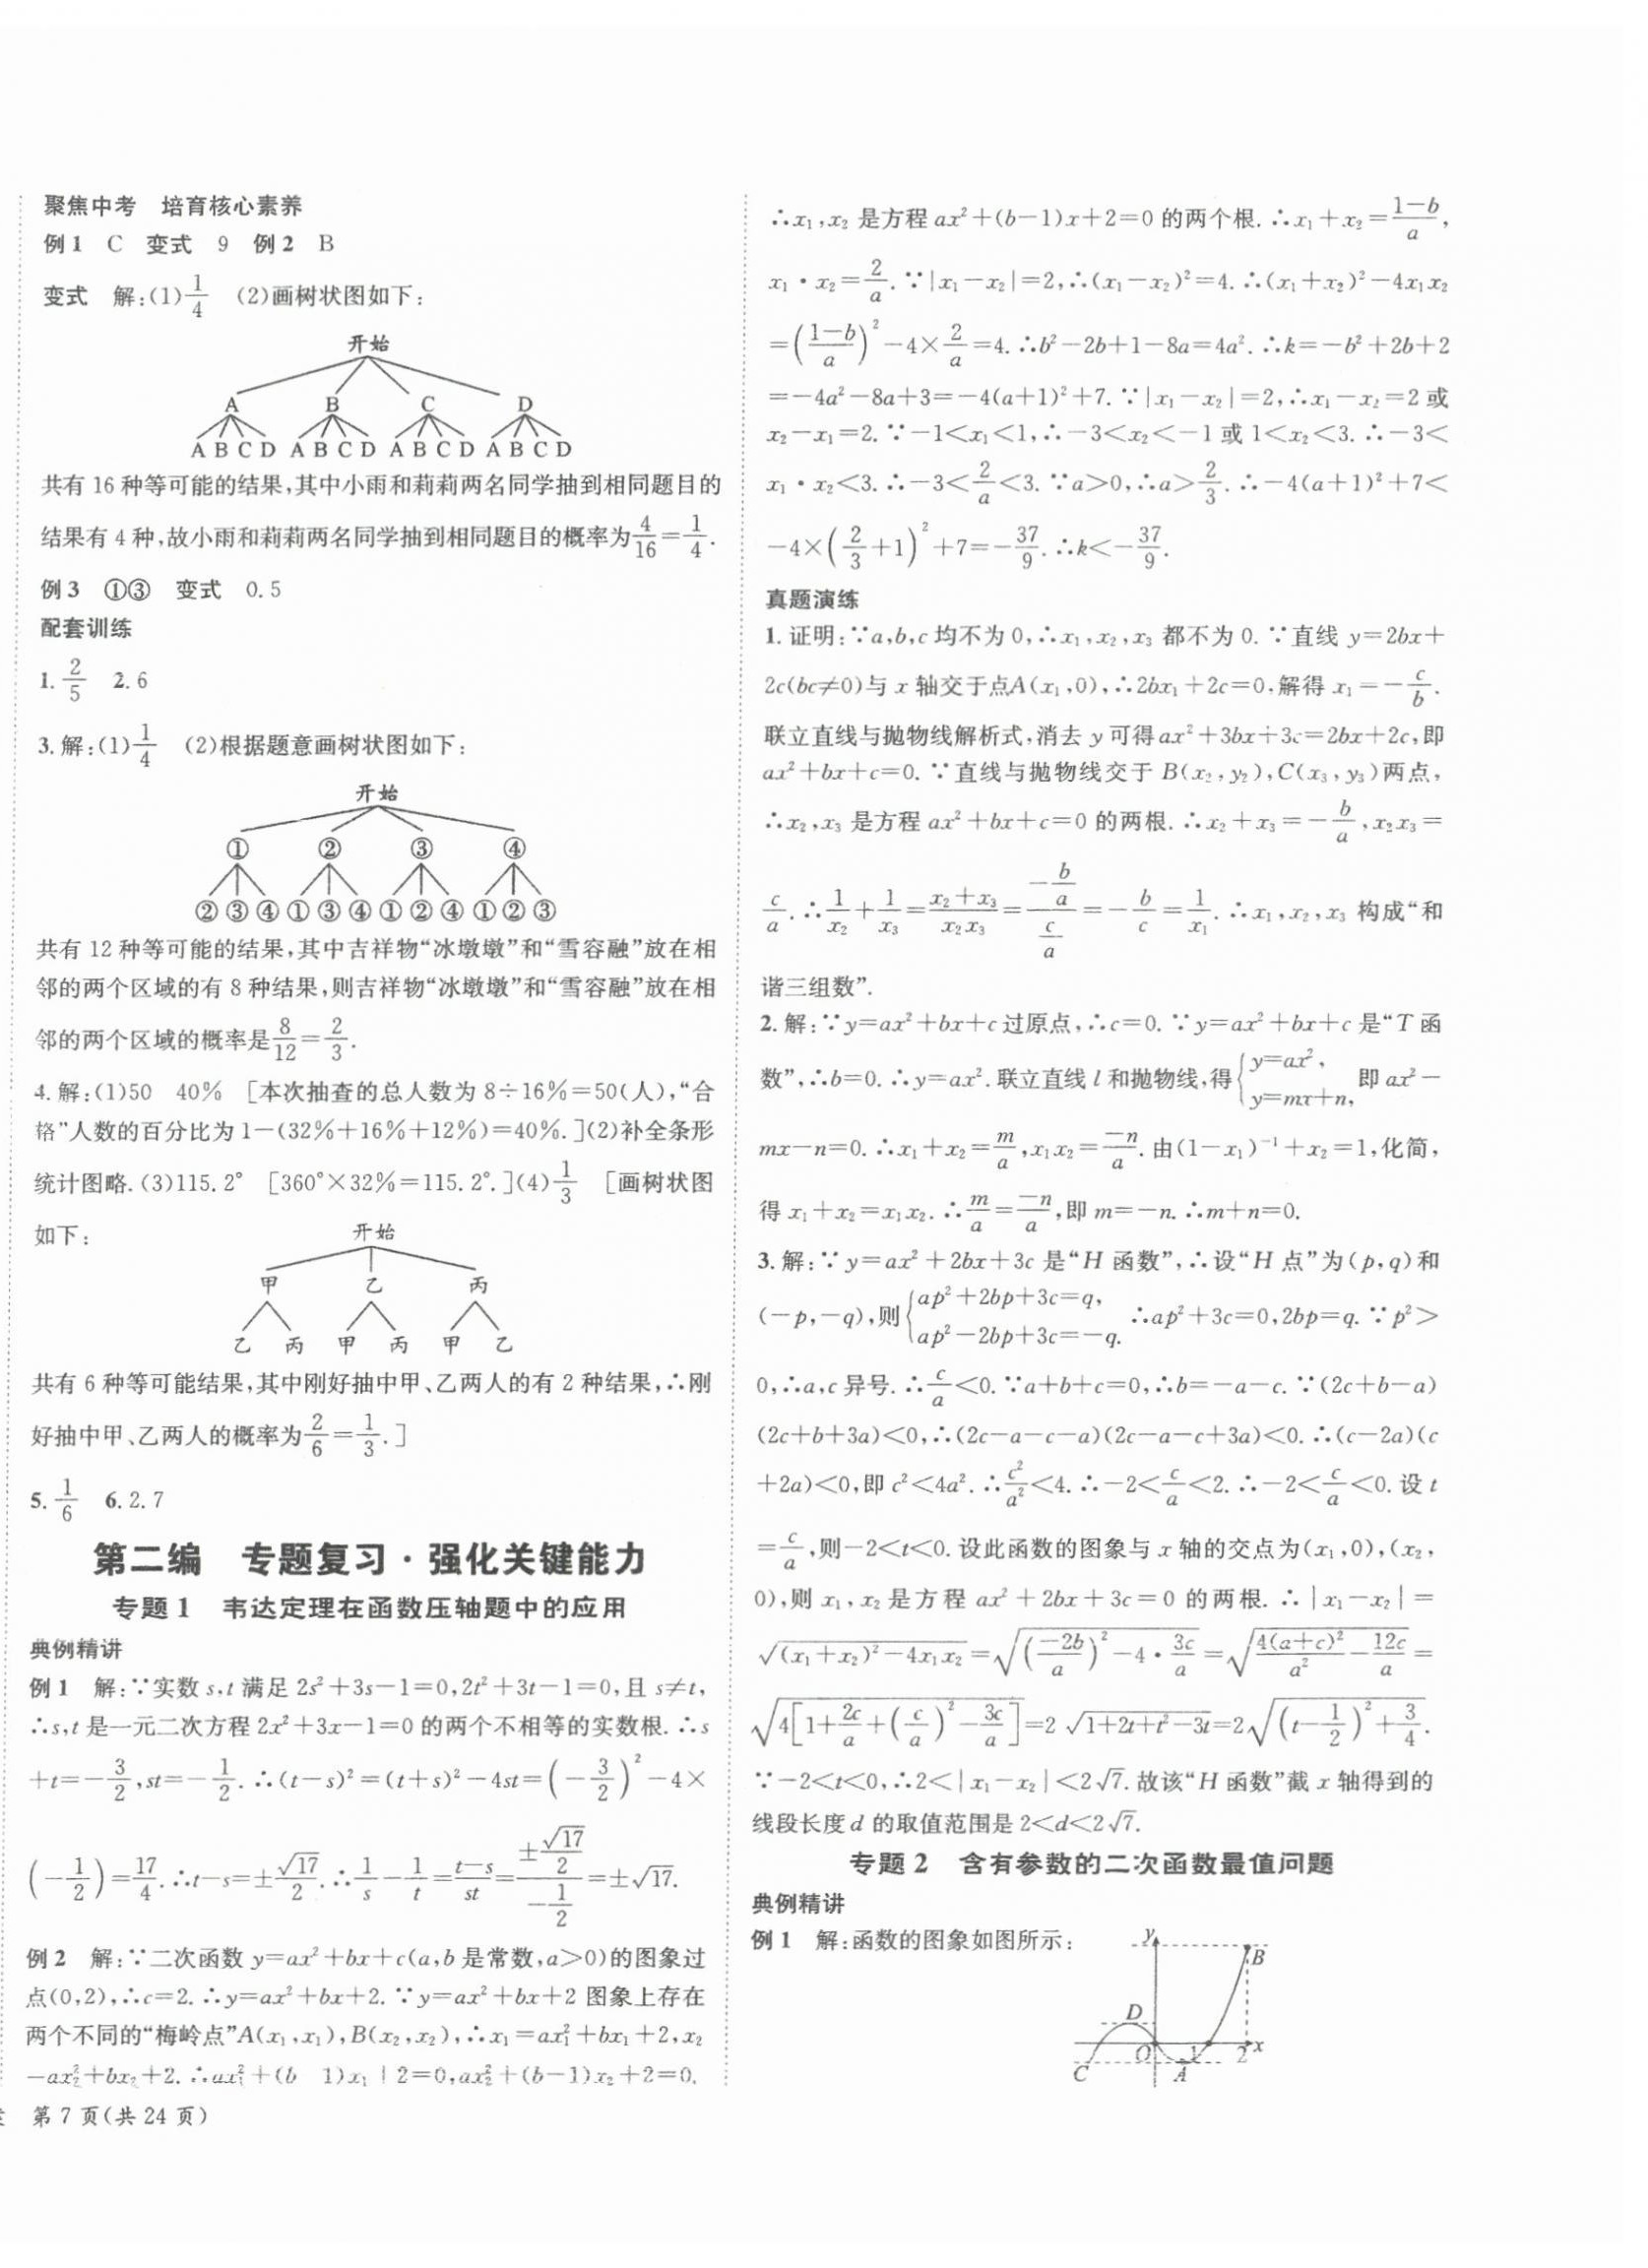 聚焦中考　培育核心素养
例1　C　变式　9　例2　B
变式　解:(1)1/4　(2)画树状图如下:
开始
A　B　C　D
A B C D　A B C D　A B C D　A B C D
共有16种等可能的结果,其中小雨和莉莉两名同学抽到相同题目的
结果有4种,故小雨和莉莉两名同学抽到相同题目的概率为4/16=1/4.
例3　①③　变式　0.5
配套训练
1. 2/5　2. 6
3. 解:(1)1/4　(2)根据题意画树状图如下:
开始
①　②　③　④
②③④　①③④　①②④　①②③
共有12种等可能的结果,其中吉祥物“冰墩墩”和“雪容融”放在相
邻的两个区域的有8种结果,则吉祥物“冰墩墩”和“雪容融”放在相
邻的两个区域的概率是8/12=2/3.
4. 解:(1)50　40%　[本次抽查的总人数为8÷16%=50(人),“合
格”人数的百分比为1-(32%+16%+12%)=40%.](2)补全条形
统计图略.(3)115.2°　[360°×32%=115.2°.](4)1/3　[画树状图
如下:
开始
甲　乙　丙
乙　丙　甲　丙　甲　乙
共有6种等可能结果,其中刚好抽中甲、乙两人的有2种结果,∴刚
好抽中甲、乙两人的概率为2/6=1/3.]
5. 1/6　6. 2.7
第二编　专题复习·强化关键能力
专题1　韦达定理在函数压轴题中的应用
典例精讲
例1　解:∵实数s,t满足2s²+3s-1=0,2t²+3t-1=0,且s≠t,
∴s,t是一元二次方程2x²+3x-1=0的两个不相等的实数根.∴s
+t=-3/2,st=-1/2.∴(t-s)²=(t+s)²-4st=(-3/2)²-4×
(-1/2)=17/4.∴t-s=±√17/2.∴1/s-1/t=(t-s)/st=(±√17/2)/(-1/2)=±√17.
例2　解:∵二次函数y=ax²+bx+c(a,b是常数,a>0)的图象过
点(0,2),∴c=2.∴y=ax²+bx+2.∵y=ax²+bx+2图象上存在
两个不同的“梅岭点”A(x₁,x₁),B(x₂,x₂),∴x₁=ax₁²+bx₁+2,x₂
=ax₂²+bx₂+2.∴ax₁²+(b-1)x₁+2=0,ax₂²+(b-1)x₂+2=0.
第7页(共24页)
∴x₁,x₂是方程ax²+(b-1)x+2=0的两个根.∴x₁+x₂=(1-b)/a,
x₁·x₂=2/a.∵|x₁-x₂|=2,∴(x₁-x₂)²=4.∴(x₁+x₂)²-4x₁x₂
=((1-b)/a)²-4×2/a=4.∴b²-2b+1-8a=4a².∴k=-b²+2b+2
=-4a²-8a+3=-4(a+1)²+7.∵|x₁-x₂|=2,∴x₁-x₂=2或
x₂-x₁=2.∵-1<x₁<1,∴-3<x₂<-1或1<x₂<3.∴-3<
x₁·x₂<3.∴-3<2/a<3.∵a>0,∴a>2/3.∴-4(a+1)²+7<
-4×(2/3+1)²+7=-37/9.∴k<-37/9.
真题演练
1. 证明:∵a,b,c均不为0,∴x₁,x₂,x₃都不为0.∵直线y=2bx+
2c(bc≠0)与x轴交于点A(x₁,0),∴2bx₁+2c=0,解得x₁=-c/b.
联立直线与抛物线解析式,消去y可得ax²+3bx+3c=2bx+2c,即
ax²+bx+c=0.∵直线与抛物线交于B(x₂,y₂),C(x₃,y₃)两点,
∴x₂,x₃是方程ax²+bx+c=0的两根.∴x₂+x₃=-b/a,x₂x₃=
c/a.∴1/x₂+1/x₃=(x₂+x₃)/(x₂x₃)=(-b/a)/(c/a)=-b/c=1/x₁.∴x₁,x₂,x₃构成“和
谐三组数”.
2. 解:∵y=ax²+bx+c过原点,∴c=0.∵y=ax²+bx+c是“T函
数”,∴b=0.∴y=ax².联立直线l和抛物线,得{y=ax², y=mx+n, 即ax²-
mx-n=0.∴x₁+x₂=m/a,x₁x₂=-n/a.由(1-x₁)⁻¹+x₂=1,化简,
得x₁+x₂=x₁x₂.∴m/a=-n/a,即m=-n.∴m+n=0.
3. 解:∵y=ax²+2bx+3c是“H函数”,∴设“H点”为(p,q)和
(-p,-q),则{ap²+2bp+3c=q, ap²-2bp+3c=-q. ∴ap²+3c=0,2bp=q.∵p²>
0,∴a,c异号.∴c/a<0.∵a+b+c=0,∴b=-a-c.∵(2c+b-a)
(2c+b+3a)<0,∴(2c-a-c-a)(2c-a-c+3a)<0.∴(c-2a)(c
+2a)<0,即c²<4a².∴c²/a²<4.∴-2<c/a<2.∴-2<c/a<0.设t
=c/a,则-2<t<0.设此函数的图象与x轴的交点为(x₁,0),(x₂,
0),则x₁,x₂是方程ax²+2bx+3c=0的两根.∴|x₁-x₂|=
√((x₁+x₂)²-4x₁x₂)=√((-2b/a)²-4·3c/a)=√(4(a+c)²/a²-12c/a)=
√(4[1+2c/a+(c/a)²-3c/a])=2√(1+2t+t²-3t)=2√((t-1/2)²+3/4).
∵-2<t<0,∴2<|x₁-x₂|<2√7.故该“H函数”截x轴得到的
线段长度d的取值范围是2<d<2√7.
专题2　含有参数的二次函数最值问题
典例精讲
例1　解:函数的图象如图所示:
y
B
D
O　1　2　x
C　A